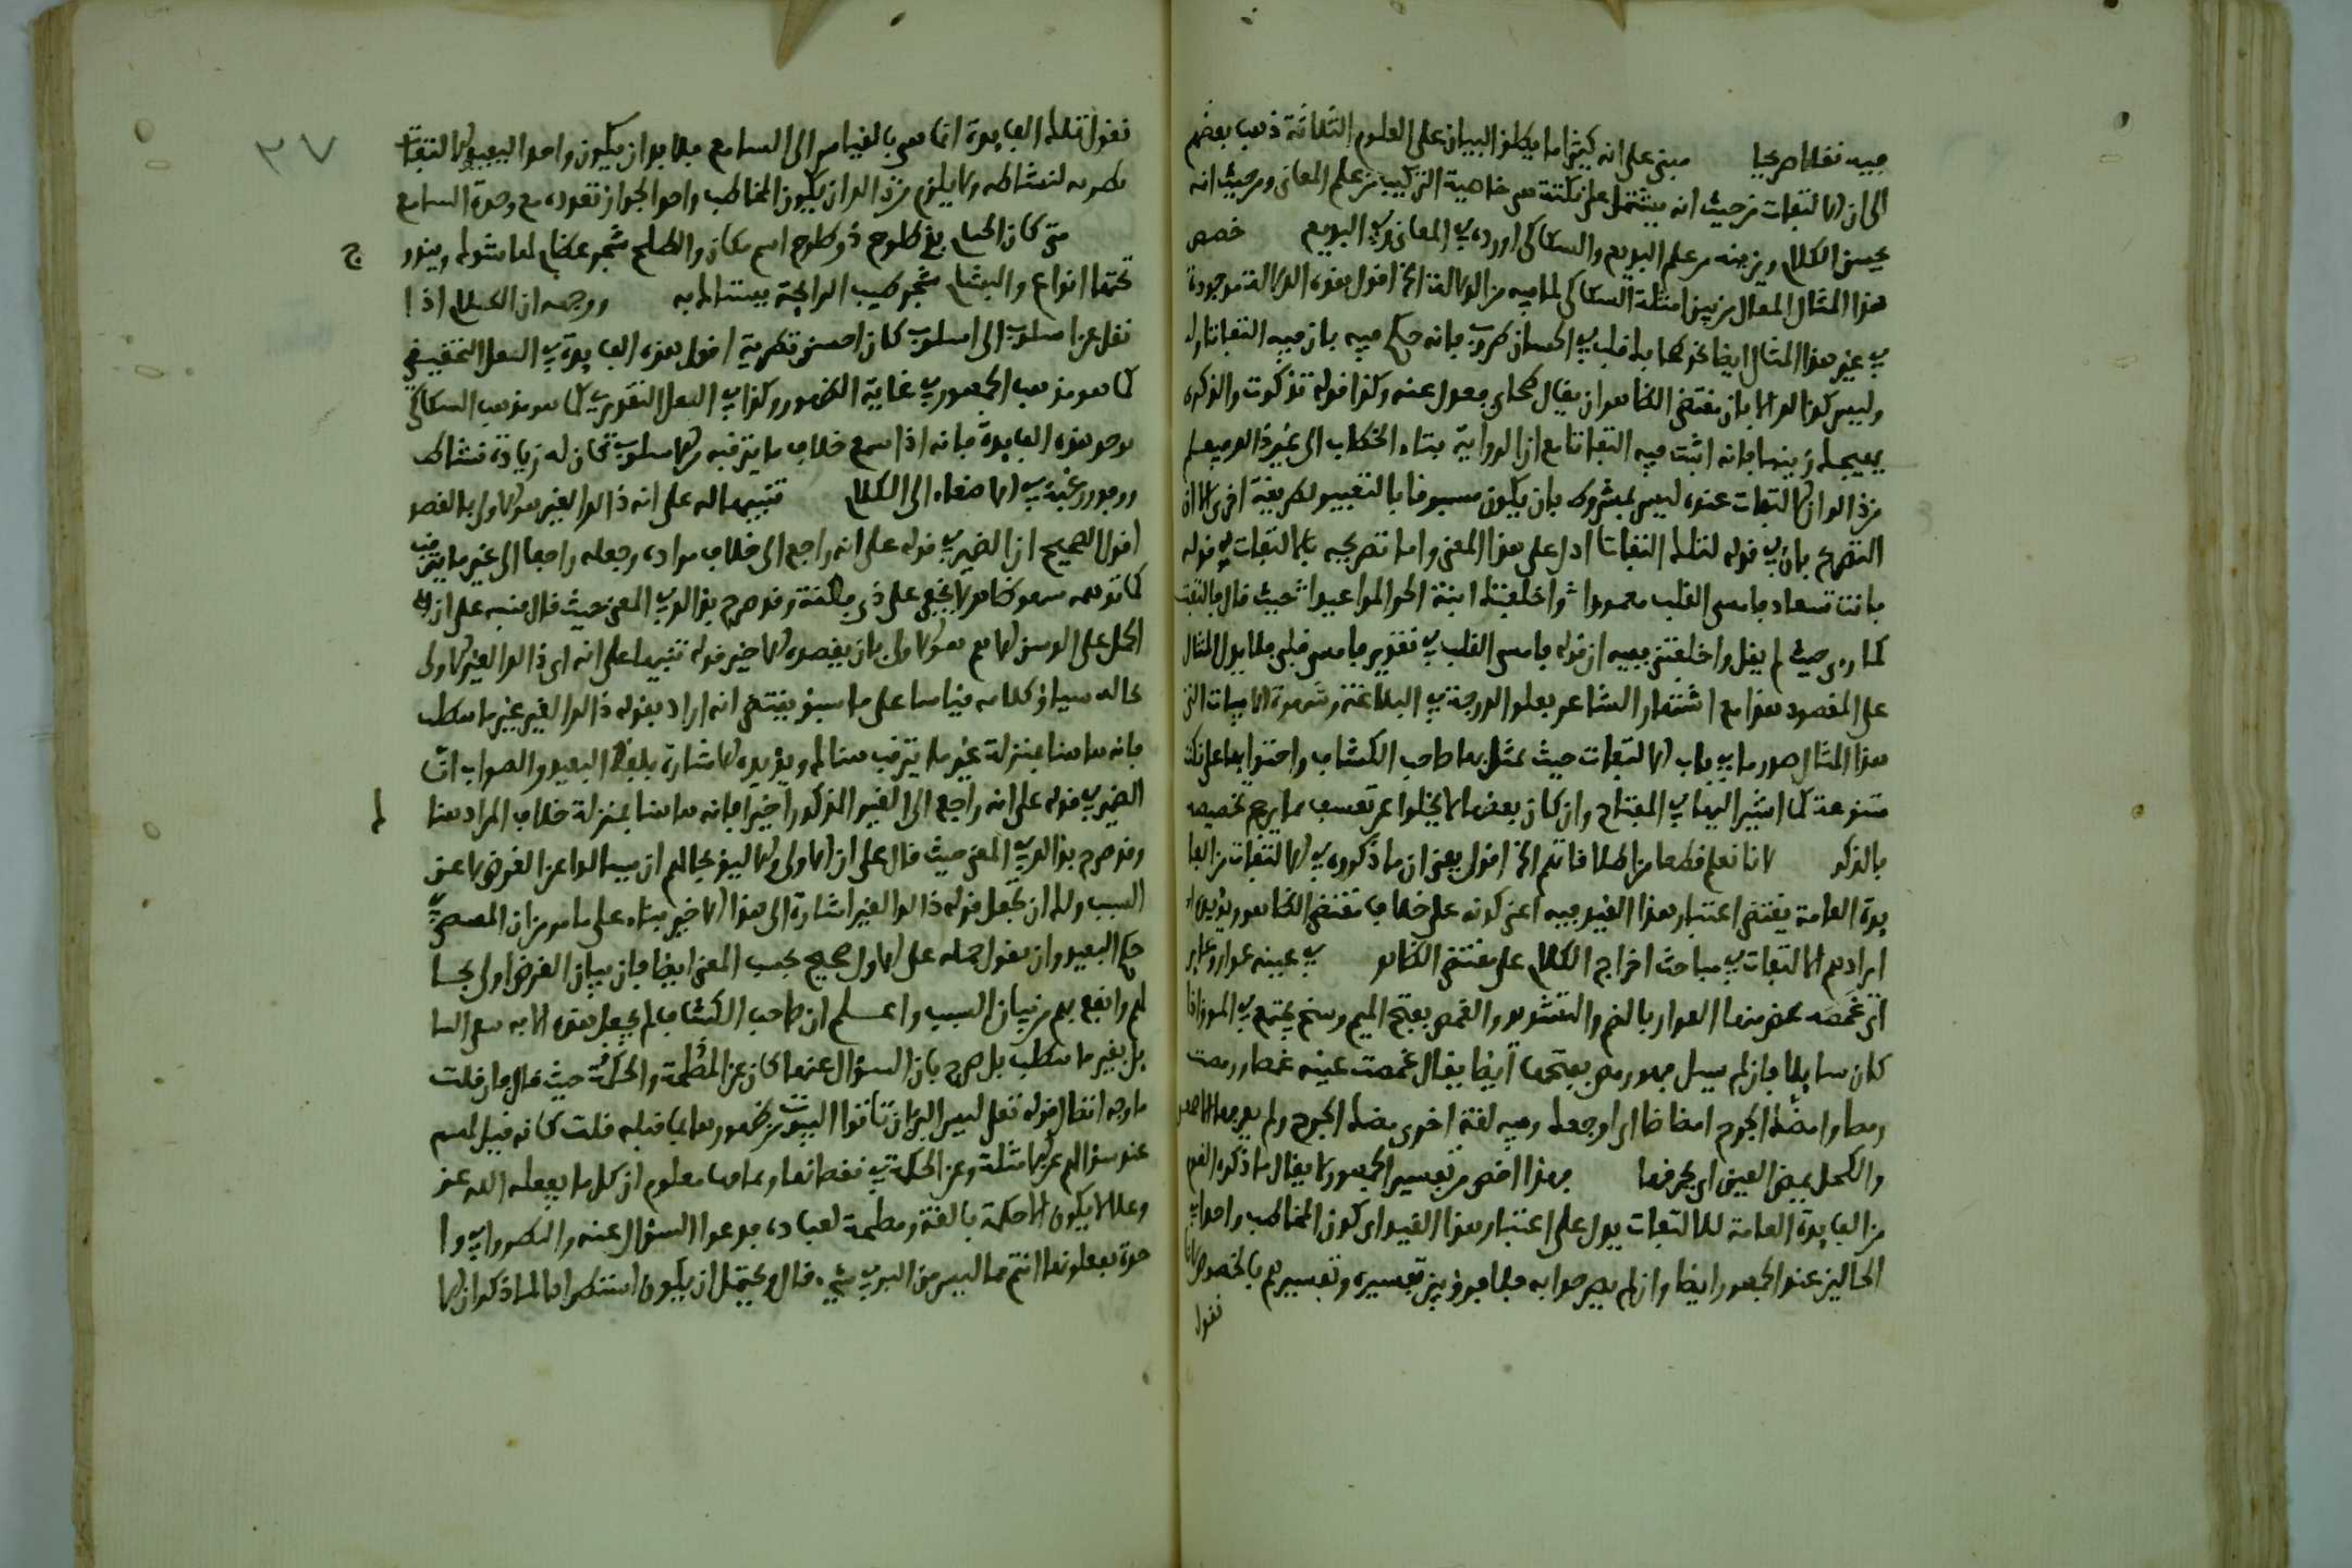 فيه نقلا صريحا مبنى على انه كثيرا ما يطلق البيان على العلوم الثلاثة ذهب بعضهم
الى ان الالتفات من حيث انه يشتمل على نكتة هى خاصية التركيب من علم المعانى ومن حيث انه
يحسن الكلام ويزينه من علم البديع والسكاكى اورده فى المعانى وفى البديع خصص
هذا المثال المقال من بين امثلة السكاكى لما فيه من الدلالة الخ اقول هذه الدلالة موجودة
فى غير هذا المثال ايضا نحو طحا بك قلب فى الحسان طروب فانه حكم فيه بان فيه التفاتا ول
وليس كذلك الا بان مقتضى الظاهر ان يقال طحا بى فعدل عنه وكذا قوله تذكرت والذكرى
يهيجك زينبا فانه اثبت فيه التفاتا مع ان الرواية بتاء الخطاب الى غير ذلك فيعلم
من ذلك ان الالتفات عنده ليس بمشروط بان يكون مسبوقا بالتعبير بطريقة اخرى الا ان
التصريح بان فى قوله لتلك التفاتا ادل على هذا المعنى واما تصريحه بالالتفات فى قوله
بانت سعاد فامسى القلب معمودا واخلفتك ابنة الحر المواعيدا حيث قال فالتفت
كما ترى حيث لم يقل واخلفتنى ففيه ان قوله فامسى القلب فى تقدير فامسى قلبى فلا يدل المثال
على المقصود هذا مع اشتهار الشاعر بعلو الدرجة فى البلاغة وشهرة الابيات التى
هذا المثال صدرها فى باب الالتفات حيث تمثل بها صاحب الكشاف واحتوائها على نكت
متنوعة كما اشير اليها فى المفتاح وان كان بعضها لا يخلوا عن تعسف مما يرجح تخصيصه
بالذكر لانا نعلم قطعا من اطلاقاتهم الخ اقول يعنى ان ما ذكروه فى الالتفات من الفا
يدة العامة يقتضى اعتبار هذا القيد فيه اعنى كونه على خلاف مقتضى الظاهر ويؤيده
ايرادهم الالتفات فى مباحث اخراج الكلام على مقتضى الظاهر فى عينه عوار وعاير
اى غمصه تمض منها العوار بالضم والتشديد والغمص بفتح الميم وسخ يجتمع فى الموق اذا
كان سايلا فان لم يسل فهو رمص بفتحها ايضا يقال غمصت عينه غمصا ورمصت
رمصا وامضك الجرح امضاضا اى اوجعك وفيه لغة اخرى مضك الجرح ولم يعرفها الاصمعى
والكحل يمض العين اى يحرقها فهذا اخص من تفسير الجمهور لا يقال ما ذكره القوم
من الفايدة العامة للالتفات يدل على اعتبار هذا القيد اى كون المخاطب واحدا فى
الحالين عند الجمهور ايضا وان لم يصرحوا به فلا فرق بين تفسيره وتفسيرهم بالخصوص لانا
نقول
نقول تلك الفايدة انما هى بالقياس الى السامع فلا بد ان يكون واحدا ليفيد الالتفات
تطرية لنشاطه ولا يلزم من ذلك ان يكون المخاطب واحدا لجواز تعدده مع وحدة السامع
متى كان الخيام بذى طلوح ذو طلوح اسم مكان والطلح شجر عظام لها شوك وينور
ج
تحتها انواع والبشام شجر طيب الرايحة يستاك به ووجهه ان الكلام اذا
نقل عن اسلوب الى اسلوب كان احسن تطرية اقول هذه الفايدة فى النقل التحقيقى
كما هو مذهب الجمهور فى غاية الظهور وكذا فى النقل التقديرى كما هو مذهب السكاكى
توجد هذه الفايدة فانه اذا سمع خلاف ما يترقبه من الاسلوب كان له زيادة نشاط
ووفور رغبة فى الاصغاء الى الكلام تنبيها له على انه ذلك الغير هو الاولى بالقصد
اقول الصحيح ان الضمير فى قوله على انه راجع الى خلاف مراده وجعله راجعا الى غير ما يترقب
كما توهمه سهو ظاهر لا يخفى على ذى فطنة وقد صرح بذلك فى المعنى حيث قال منبه على ان
الحمل على الادهم هو الاولى بان يقصده الاخير قوله تنبيها على انه اى ذلك الغير الاولى
بحاله سياق كلامه قياسا على ما سبق يقتضى انه اراد بقوله ذلك الغير غير ما يتطلب
فانه هاهنا بمنزلة غير ما يترقب هنالك ويؤيده الاشارة بلفظ البعيد والصواب ان
الضمير فى قوله على انه راجع الى الغير المذكور اخيرا فانه هاهنا بمنزلة خلاف المراد هنا
لم
وقد صرح بذلك فى المعنى حيث قال على ان الاولى والاليق بحالهم ان يسالوا عن الغرض لا عن
السبب ولك ان تجعل قوله ذلك الغير اشارة الى هذا الاخير بناء على ما مر من ان المصحى فى
حكم البعيد وان تقول حمله على الاول صحيح بحسب المعنى ايضا فان بيان الغرض اولى بحا
لهم وانفع بهم من بيان السبب واعلم ان صاحب الكشاف لم يجعل هذه الاية من السا
يل بغير ما يتطلب بل صرح بان السؤال عنها كان عن المصلحة والحكمة حيث قال فان قلت
ما وجه اتصال قوله تعلى ليس البر بان تاتوا البيوت من ظهورها بما قبله قلت كانه قيل لهم
عند سؤالهم عن الاهلة وعن الحكمة فى نقصانها وتمامها معلوم ان كل ما يفعله الله عز
وعلا لا يكون الا حكمة بالغة ومصلحة لعباده فدعوا السؤال عنه وانظروا فى وا
حدة تفعلونها انتم مما ليس من البر فى شىء قال ويحتمل ان يكون استطرادا لما ذكر انها
٣٧